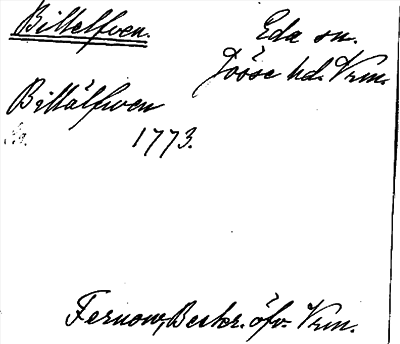 Billelfven.
Eda sn.
Jösse hd. Vrm.
Billälfwen
1773.
Fernow, Beskr. öfv. Vrm.